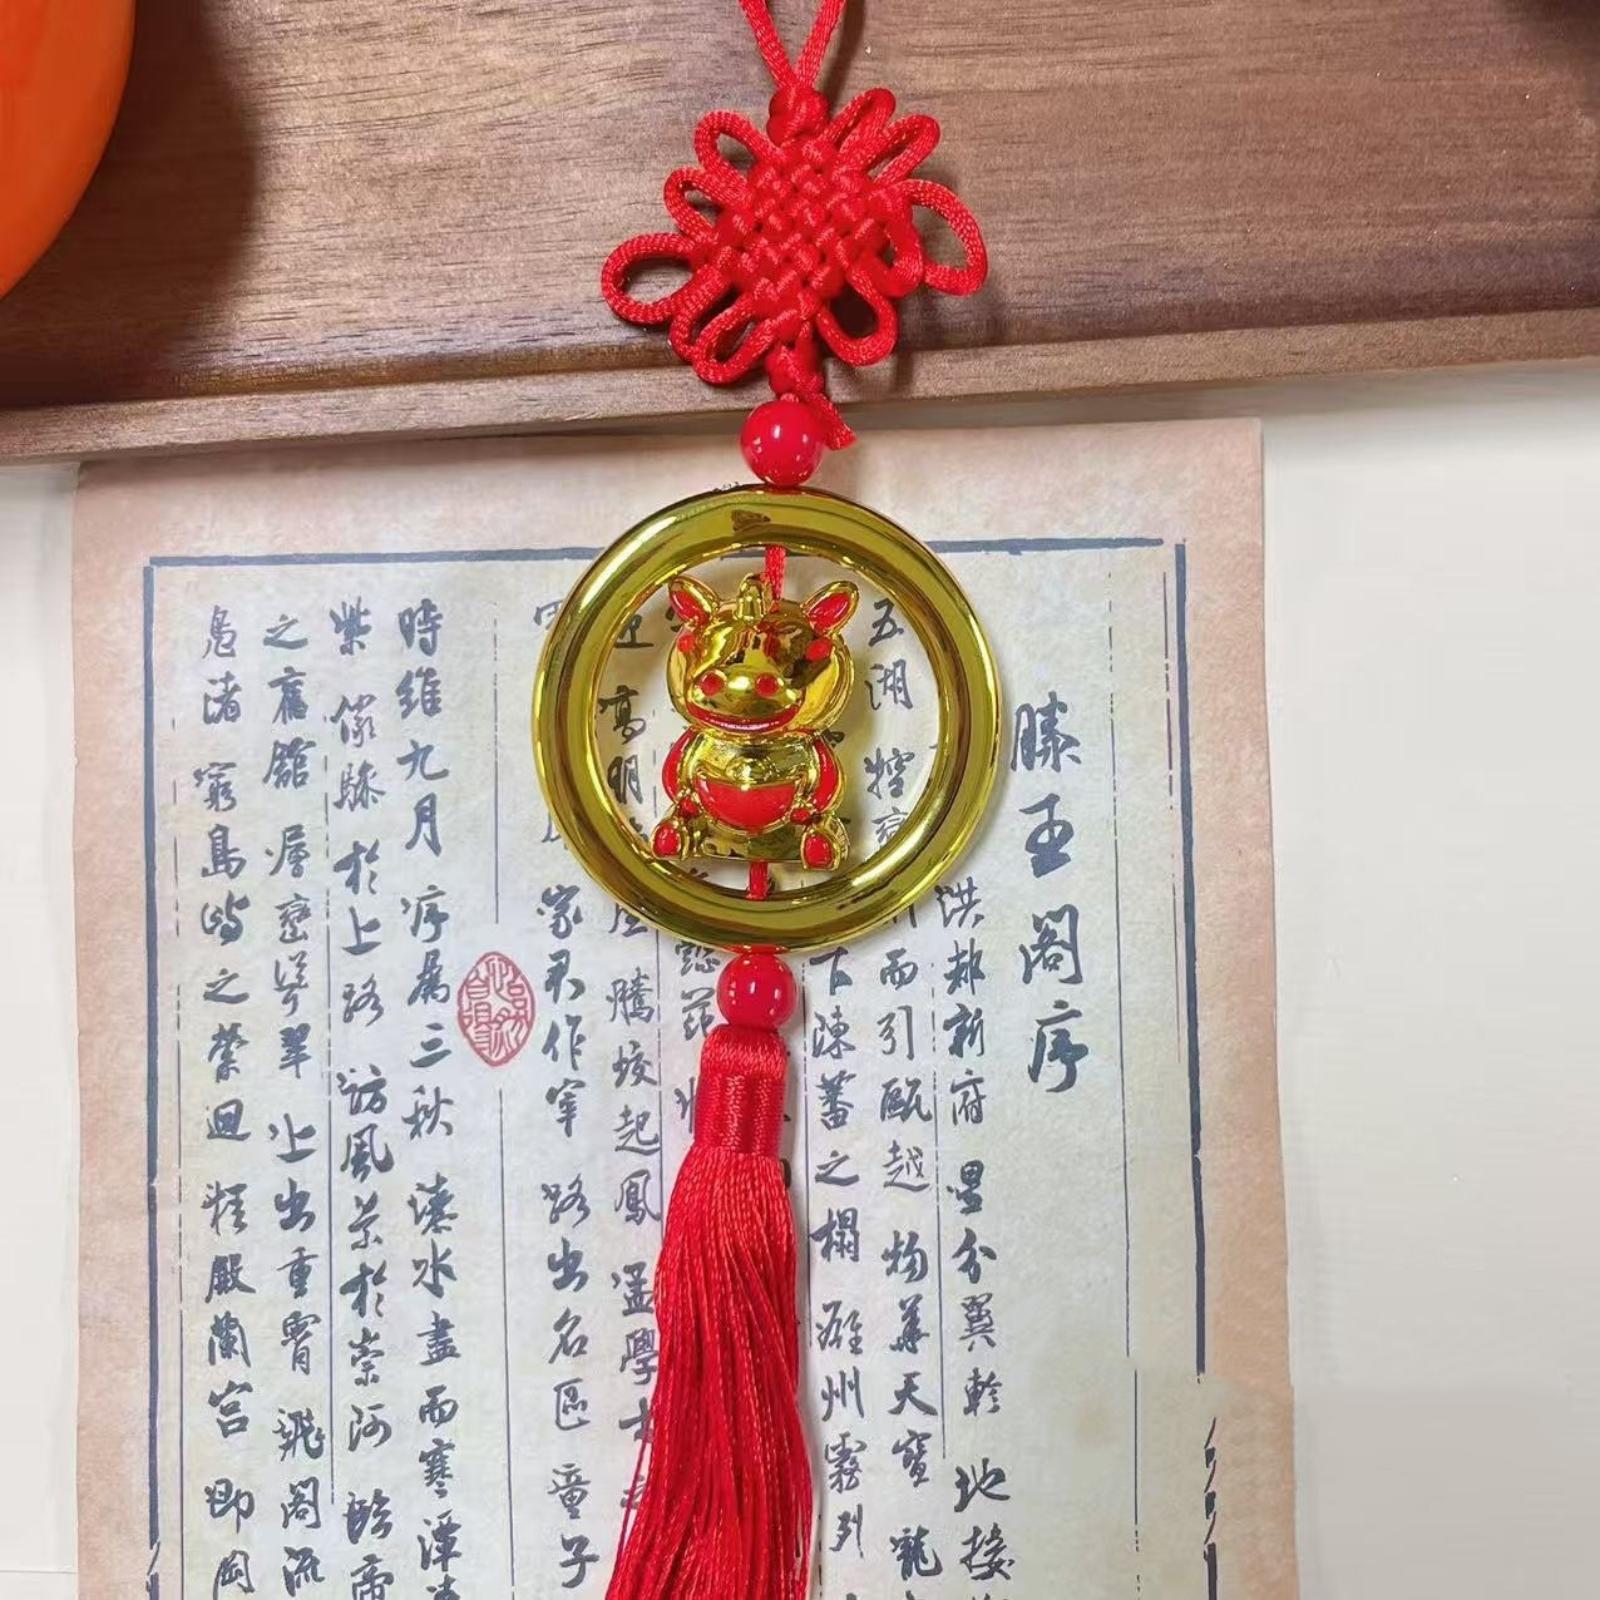 滕王閣序
洪都新府 星分翼軫 地接
五湖 控 而引甌越 物華天寶 龍
下陳蕃之榻 雄州霧列
懿範
高明 騰蛟起鳳 孟學士
家君作宰 路出名區 童子
時維九月 序屬三秋 潦水盡而寒潭
紫 儼驂於上路 訪風景於崇阿 臨帝
之舊館 層巒聳翠 上出重霄 飛閣流
鳧渚 窮島嶼之縈迴 桂殿蘭宮 即岡